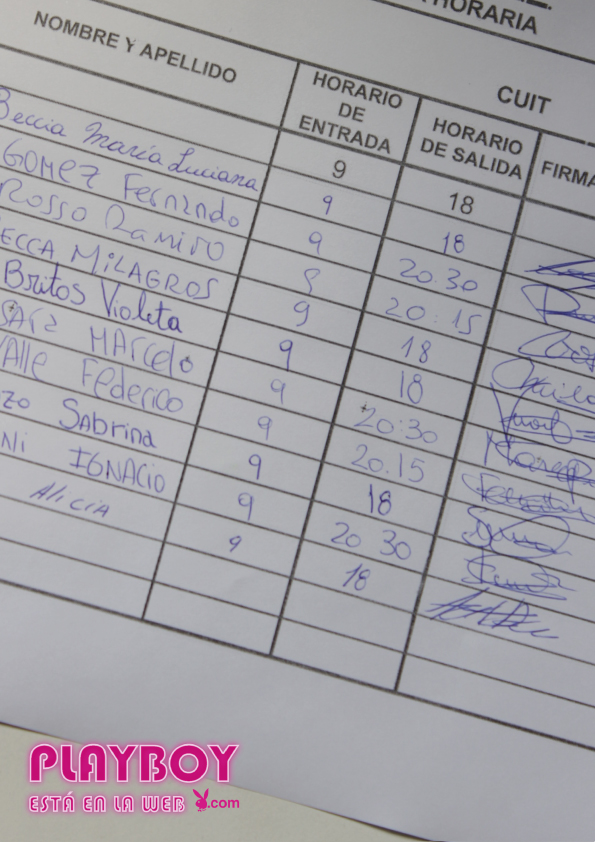 HORARIA
CUIT
NOMBRE Y APELLIDO
HORARIO
DE
ENTRADA
HORARIO
DE SALIDA
FIRMA
9 18
Beccia María Luciana 9 18
GOMEZ Fernando 9 20.30
ROSSO Ramiro 8 20:15
ECCA MILAGROS 9 18
Britos Violeta 9 18
MArcelo 9 20:30
VAlle Federico 9 20.15
ZO SAbrina 9 18
NI IGNACIO 9 20 30
Alicia 9 18
PLAYBOY
ESTÁ EN LA WEB .com